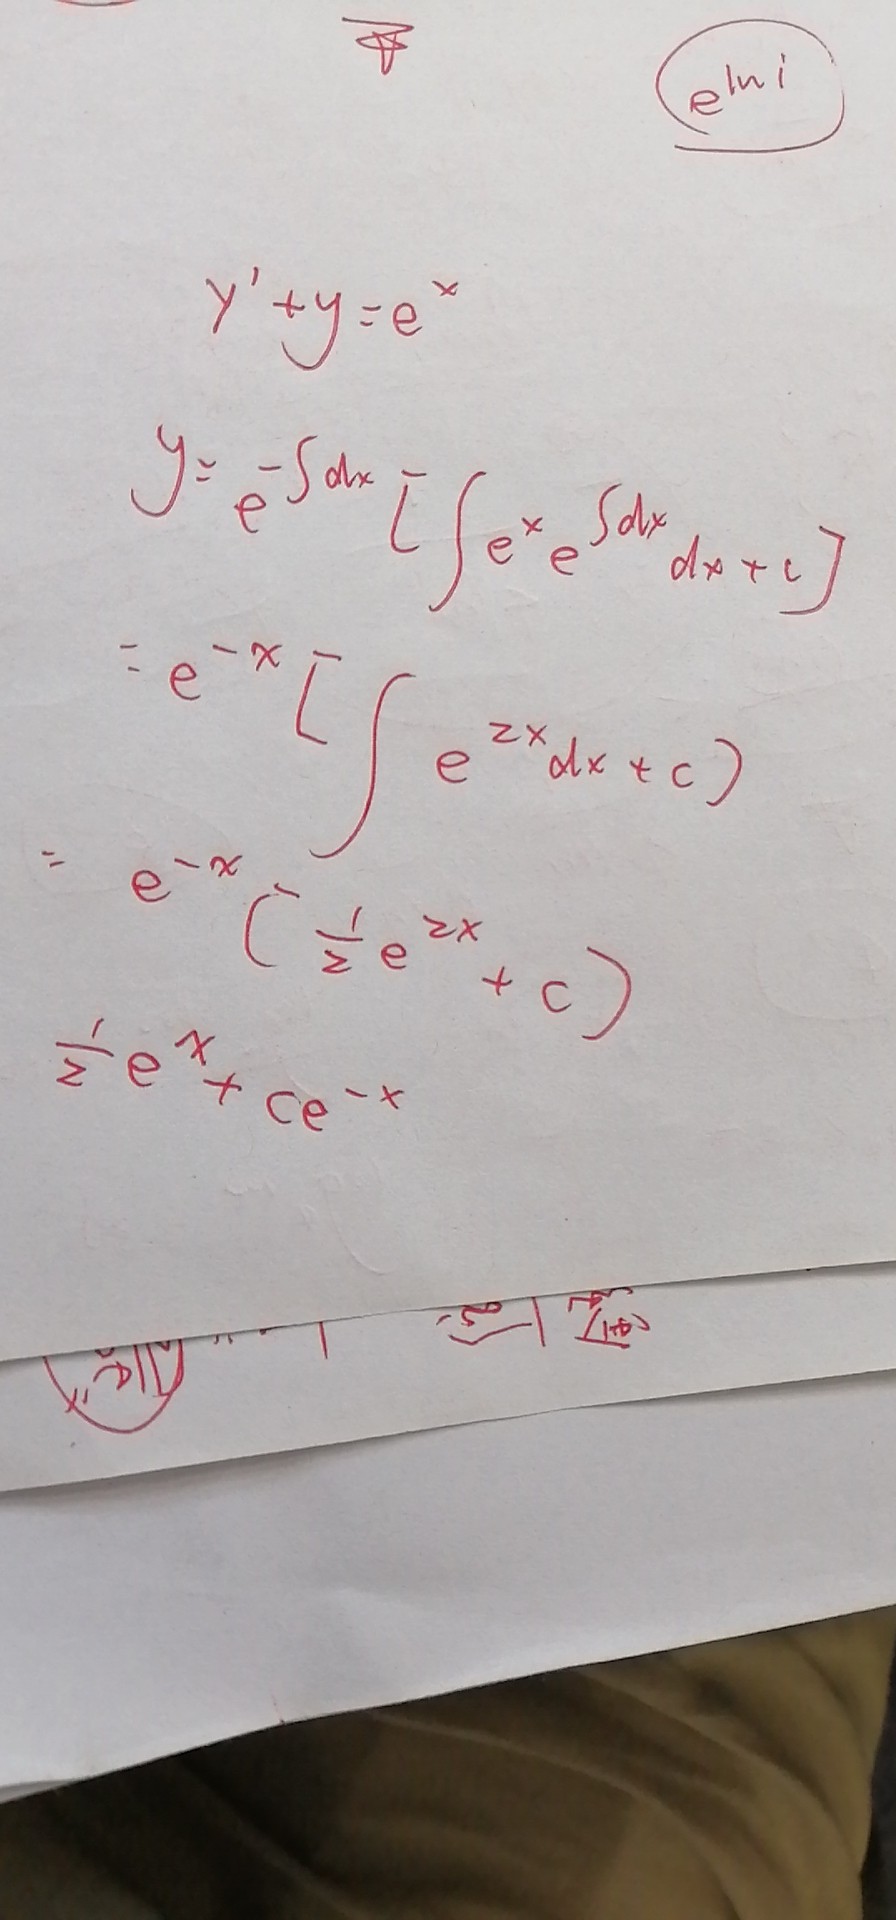 e^{ln i}
y' + y = e^x
y = e^{-∫dx} [∫e^x e^{∫dx} dx + c]
= e^{-x} [∫ e^{2x} dx + c)
= e^{-x} (½ e^{2x} + c)
½ e^x + ce^{-x}